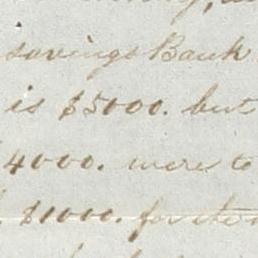 savings Bank
is $5000. but
4000. were to
$1000. for